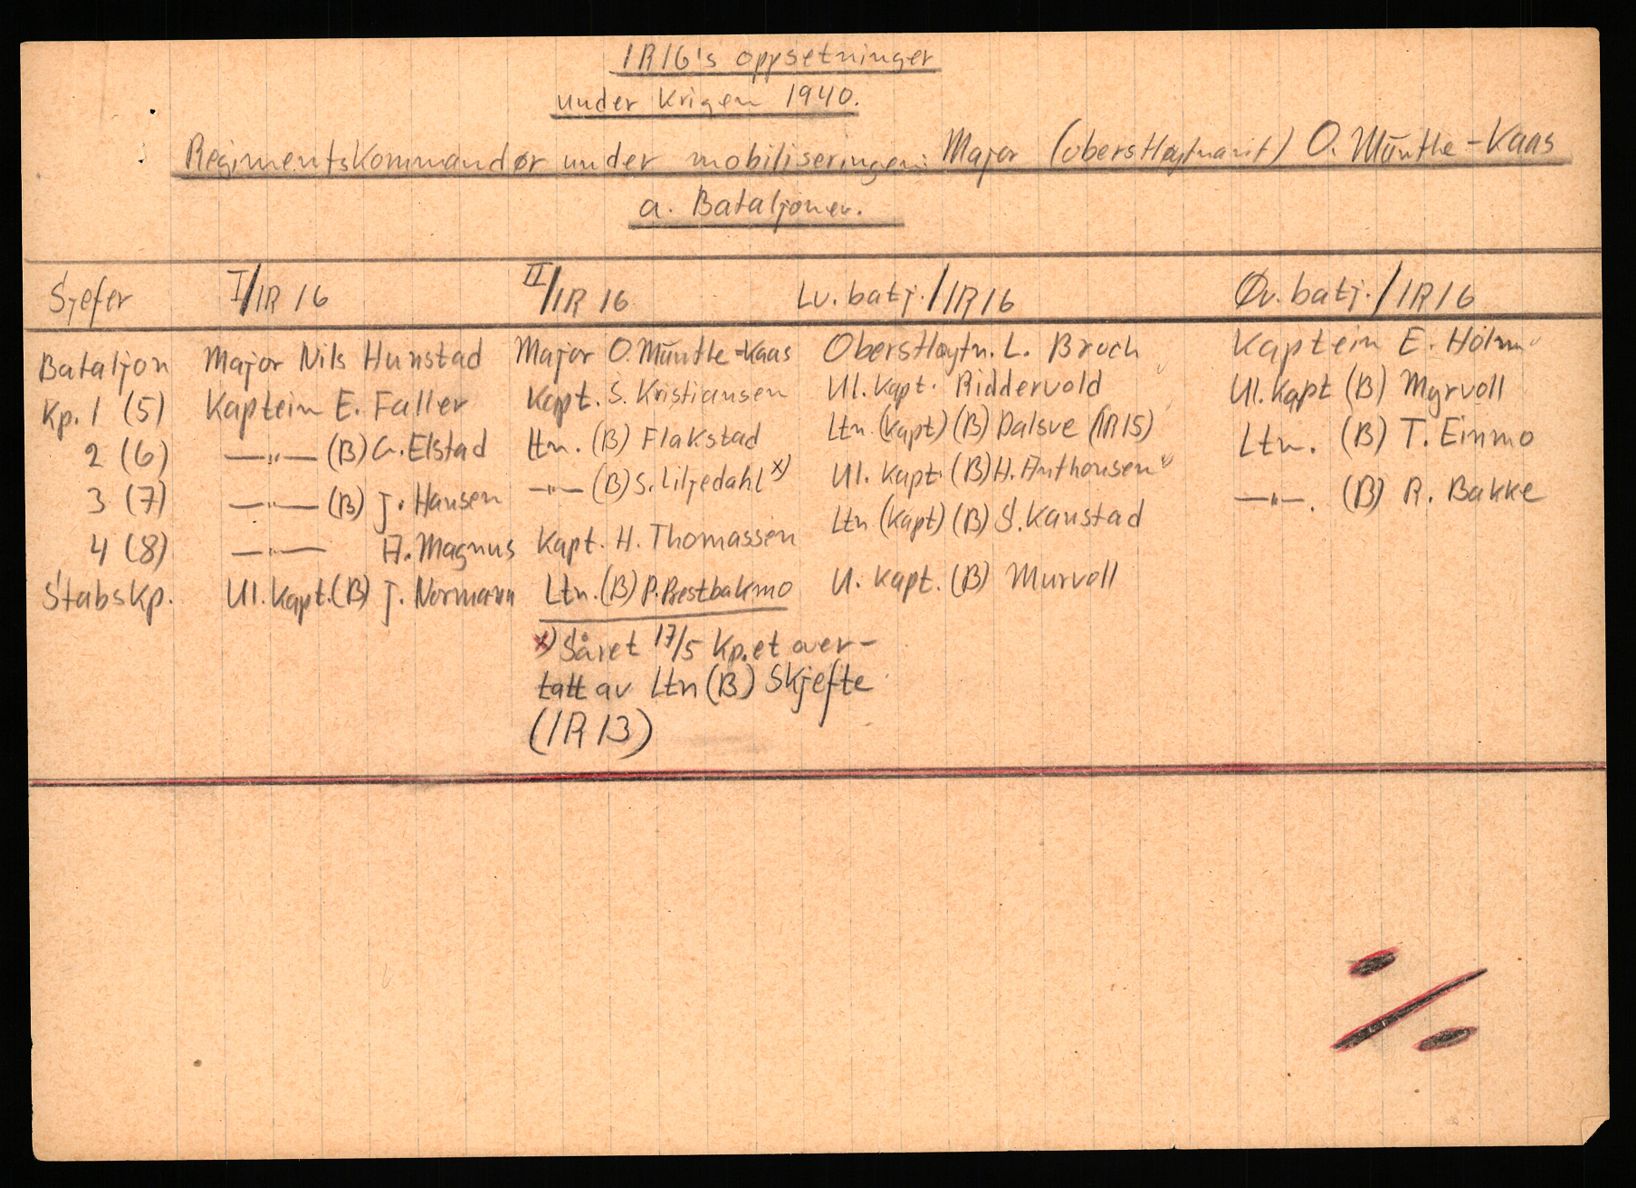 IR16's oppsetninger
under krigen 1940.
Regimentskommandør under mobiliseringen: Major (oberstløytnant) O. Munthe-Kaas
a. Bataljoner.
Sjefer I/IR 16 II/IR 16 Lv. batj./IR16 Øv. batj./IR16
Bataljon Major Nils Hunstad Major O. Munthe-Kaas Oberstløytn. L. Broch Kaptein E. Holm
Kp. 1 (5) Kaptein E. Faller Kapt. S. Kristiansen Ul. Kapt. Riddervold Ul. Kapt (B) Myrvoll
2 (6) —"— (B) G. Elstad Ltn. (B) Flakstad Ltn (Kapt) (B) Dalsve (IR15) Ltn. (B) T. Einmo
3 (7) —"— (B) J. Hansen —"— (B) S. Liljedahl x) Ul. Kapt. (B) H. Anthonsen —"—. (B) R. Bakke
4 (8) —"— A. Magnus Kapt. H. Thomassen Ltn (Kapt) (B) S. Kanstad
Stabskp. Ul. Kapt. (B) J. Normann Ltn. (B) P. Prestbakmo U. Kapt. (B) Murvoll
x) Såret 17/5 Kp.et over-
tatt av Ltn (B) Skjefte
(IR 13)
./.